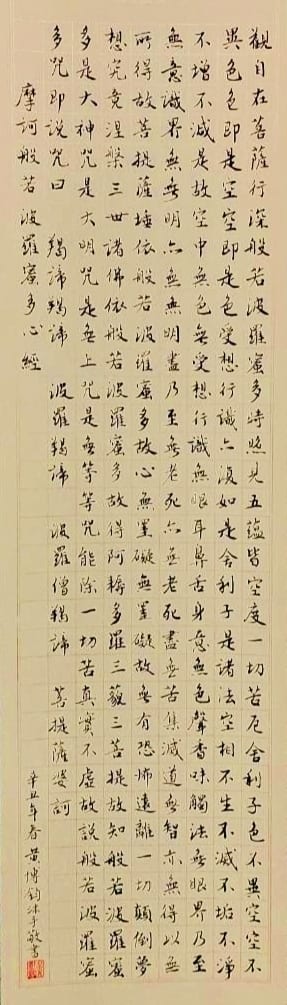 觀自在菩薩行深般若波羅蜜多時照見五蘊皆空度一切苦厄舍利子色不異空空不
異色色即是空空即是色受想行識亦復如是舍利子是諸法空相不生不滅不垢不淨
不增不減是故空中無色無受想行識無眼耳鼻舌身意無色聲香味觸法無眼界乃至
無意識界無無明亦無無明盡乃至無老死亦無老死盡無苦集滅道無智亦無得以無
所得故菩提薩埵依般若波羅蜜多故心無罣礙無罣礙故無有恐怖遠離一切顛倒夢
想究竟涅槃三世諸佛依般若波羅蜜多故得阿耨多羅三藐三菩提故知般若波羅蜜
多是大神咒是大明咒是無上咒是無等等咒能除一切苦真實不虛故說般若波羅蜜
多咒即說咒曰 羯諦羯諦 波羅羯諦 波羅僧羯諦 菩提薩婆訶
摩訶般若波羅蜜多心經
辛丑年春黃博鈞沐手敬書